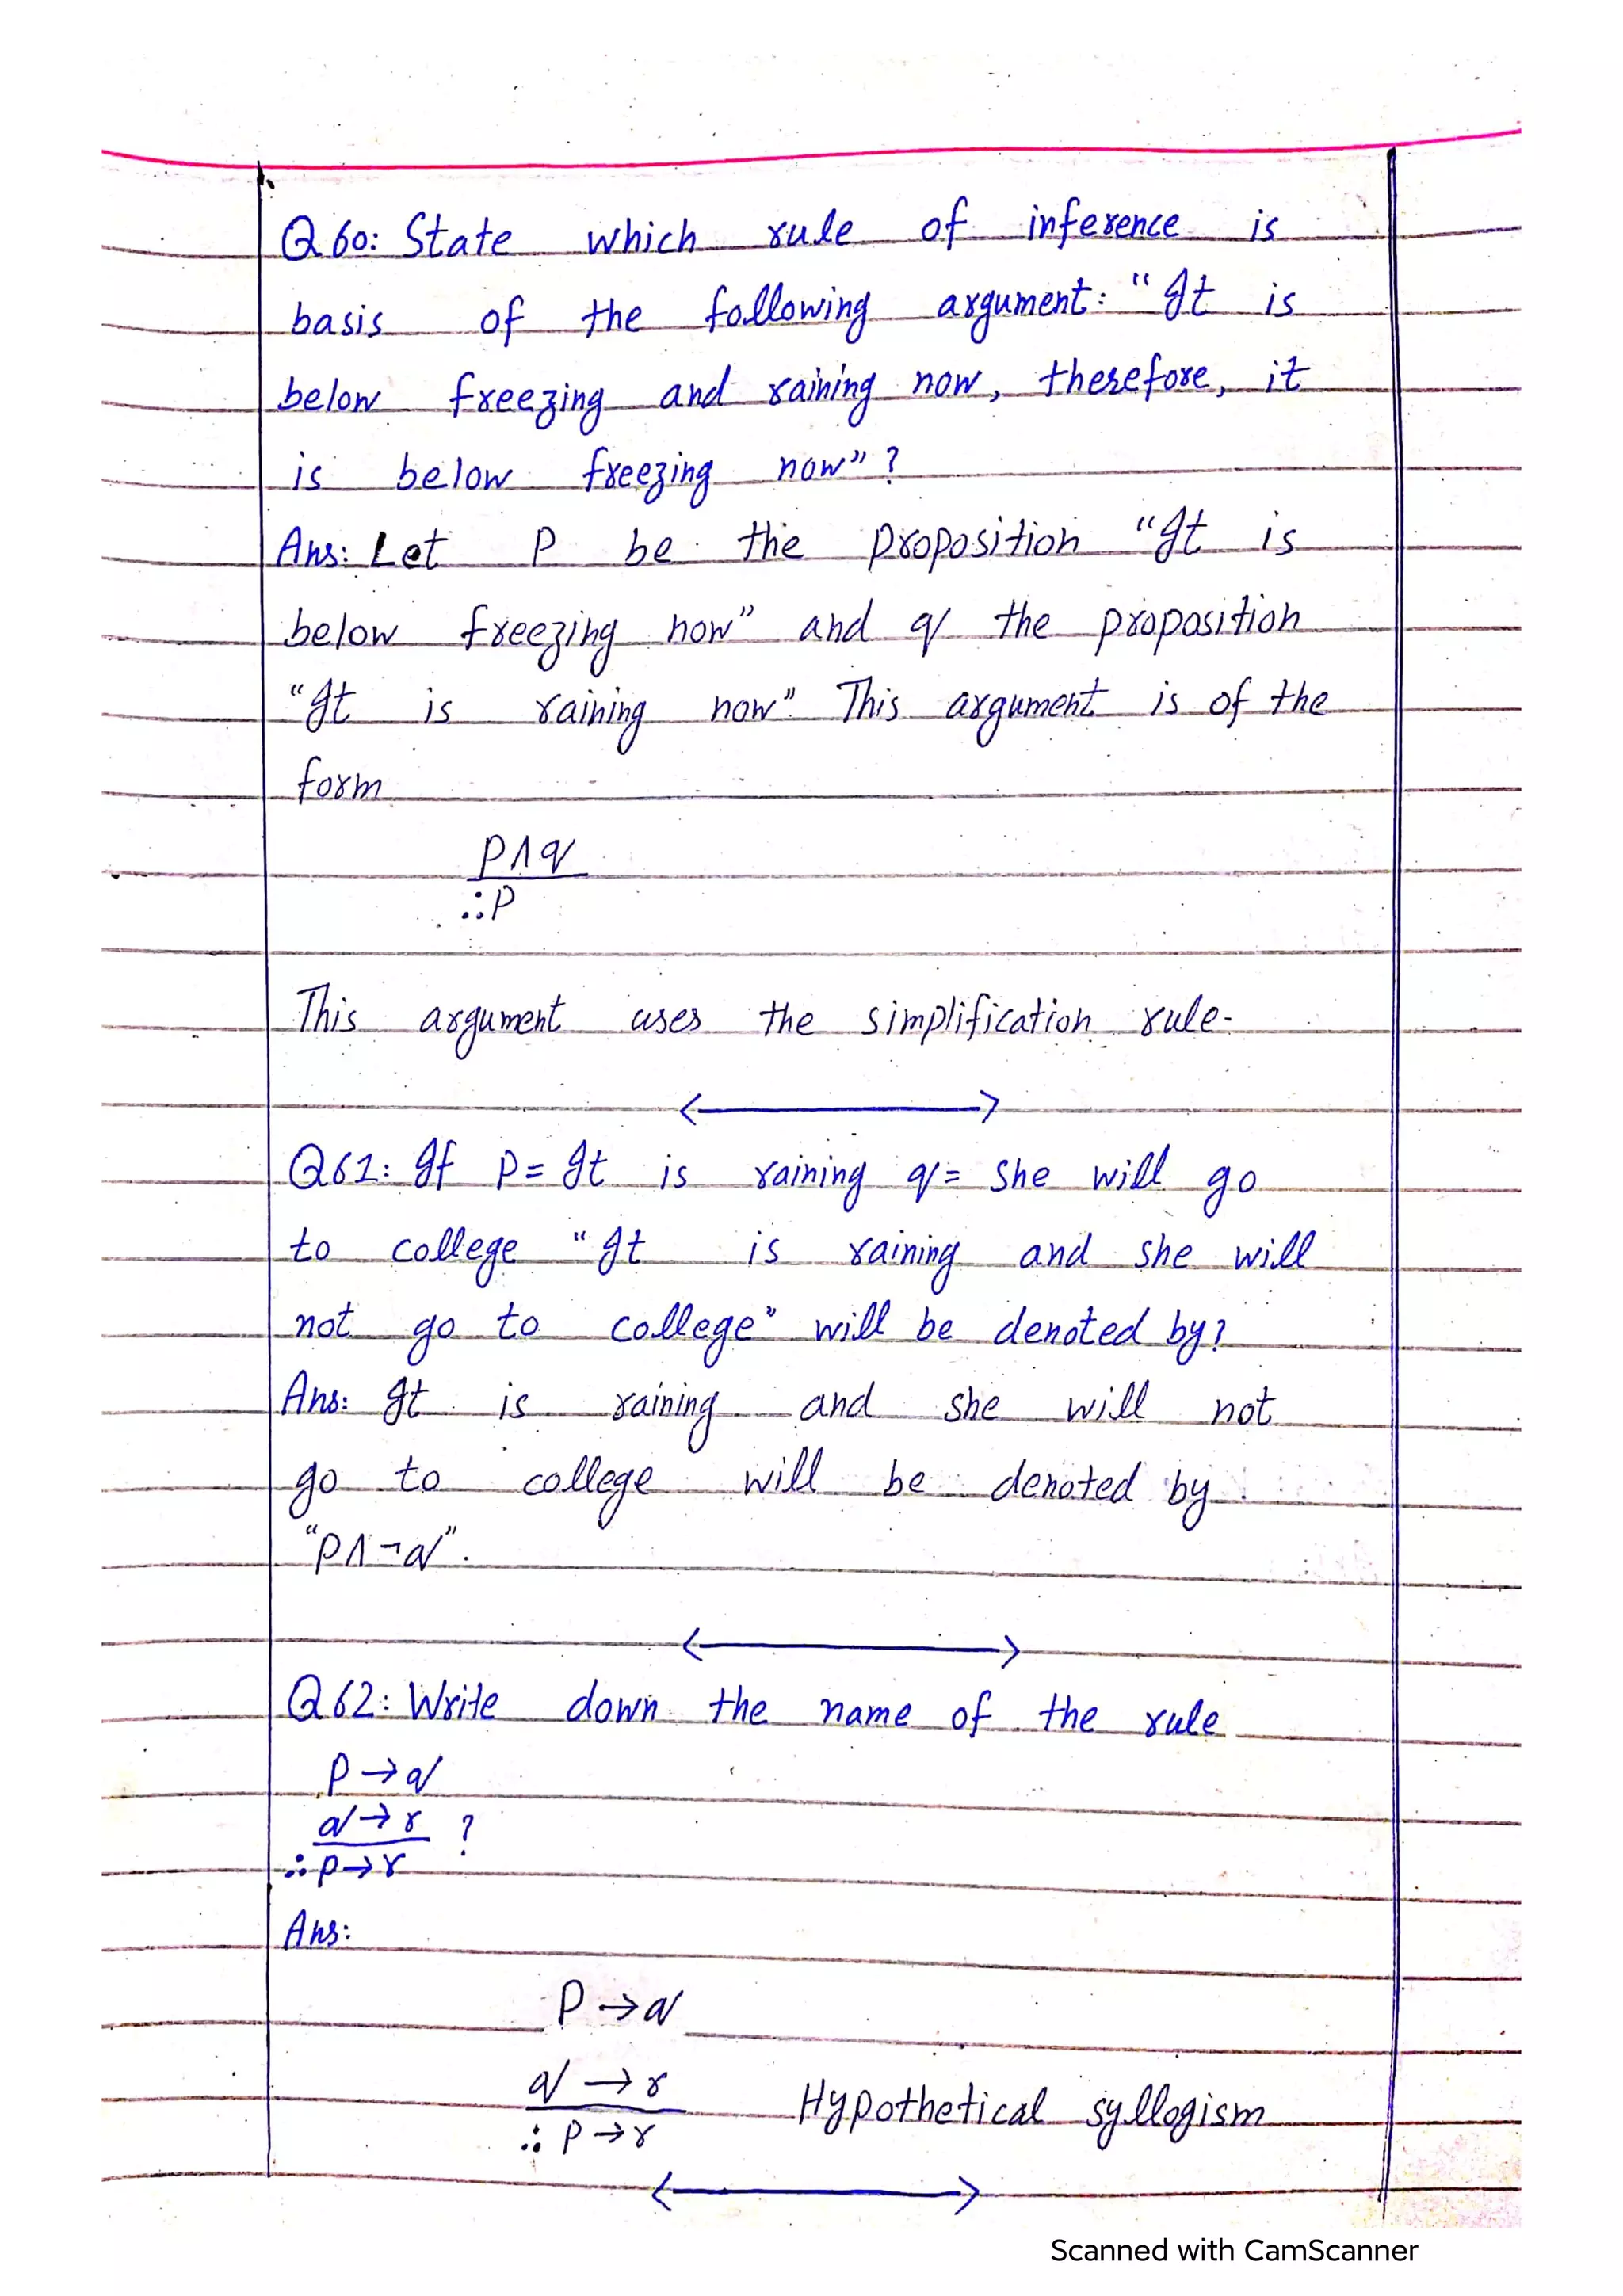 Q60: State which rule of inference is
basis of the following argument: "It is
below freezing and raining now, therefore, it
is below freezing now"?
Ans: Let P be the proposition "It is
below freezing now" and q the proposition
"It is raining now" This argument is of the
form
P∧q
∴P
This argument uses the simplification rule.
Q61: If P= It is raining q= She will go
to college "It is raining and she will
not go to college" will be denoted by?
Ans: It is raining and she will not
go to college will be denoted by
"P∧¬q".
Q62: Write down the name of the rule
P→q
q→r ?
∴P→r
Ans:
P→q
q→r
∴ P→r Hypothetical syllogism
Scanned with CamScanner